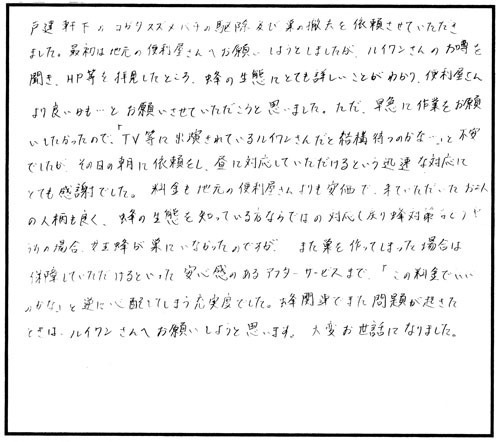 戸建軒下のコガタスズメバチの駆除及び巣の撤去を依頼させていただき
ました。最初は地元の便利屋さんへお願いしようとしましたが、ルイワンさんの噂を
聞き、HP等を拝見したところ、蜂の生態にとても詳しいことがわかり、便利屋さん
より良いかも…とお願いさせていただこうと思いました。ただ、早急に作業をお願
いしたかったので、「TV等に出演されているルイワンさんだと結構待つのかな…」と不安
でしたが、その日の朝に依頼をし、昼に対応していただけるという迅速な対応に
とても感謝でした。料金も地元の便利屋さんよりも安価で、来ていただいたお二人
の人柄も良く、蜂の生態を知っている方ならではの対応(戻り蜂対策etc)で
うちの場合、女王蜂が巣にいなかったのですが、また巣を作ってしまった場合は
保障していただけるといった安心感のあるアフターサービスまで、「この料金でいい
のかな」と逆に心配してしまう充実度でした。お蜂関連でまた問題が起きた
ときは、ルイワンさんへお願いしようと思います。大変お世話になりました。